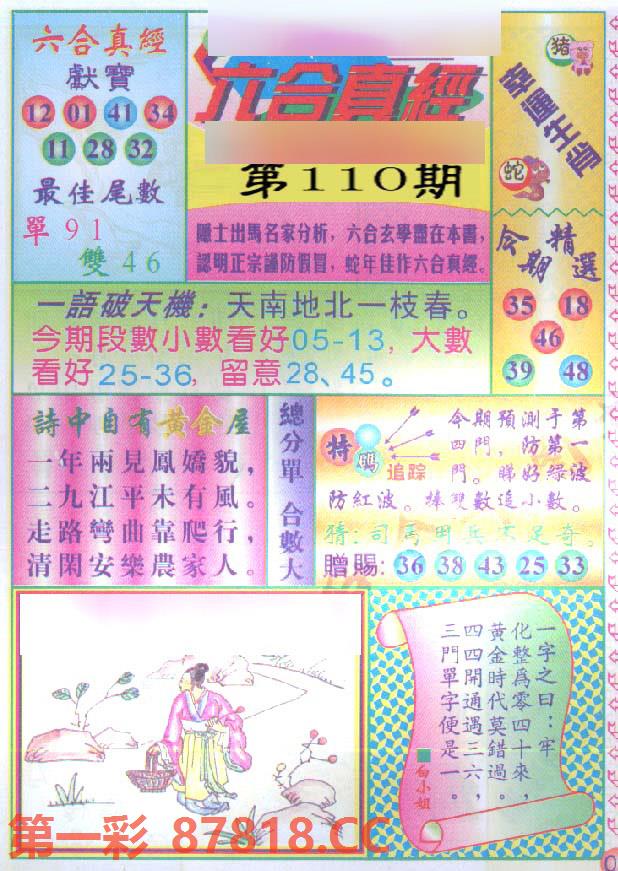 六合真經
獻寶
12 01 41 34
11 28 32
最佳尾數
單 91
雙 46
六合真經
第110期
隱士出馬名家分析，六合玄學盡在本書，
認明正宗謹防假冒，蛇年佳作六合真經。
豬
蛇
今期精選
35 18
46
39 48
一語破天機：天南地北一枝春。
今期段數小數看好05-13，大數
看好25-36，留意28、45。
詩中自有黃金屋
一年兩見鳳嬌貌，
二九江平未有風。
走路彎曲靠爬行，
清閑安樂農家人。
總分單 合數大
特碼
追踪
今期預測于第
四門，防第一
門。睇好绿波
防紅波。捧雙數追小數。
猜：司馬田兵不足奇。
贈賜：36 38 43 25 33
一字之曰：牢
化整爲零四十來，
黃金時代莫錯過。
四四開通遇三六，
三門單字便是一。
白小姐
第一彩 87818.CC